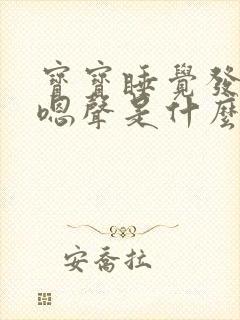 寶寶睡覺發
嗯聲是什麼
安喬拉